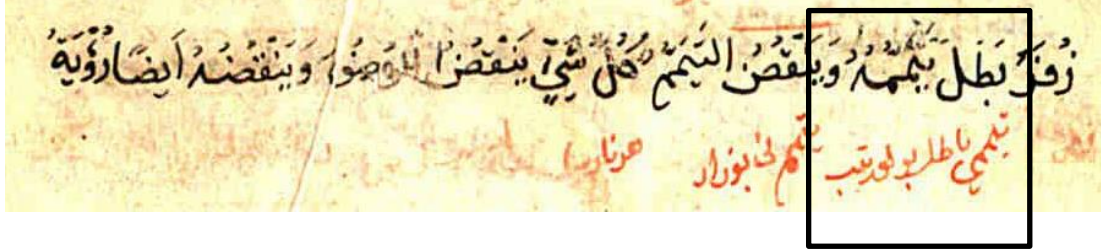 زُفَرَ بَطَلَ تَيَمُّمُهُ وَيَنْقُضُ التَّيَمُّمَ كُلُّ شَيْءٍ يَنْقُضُ الْوُضُوءَ وَيَنْقُضُهُ اَيضًا رُؤْيَةُ
تيممى باطل بولور تيمم نى بوزار هر نا